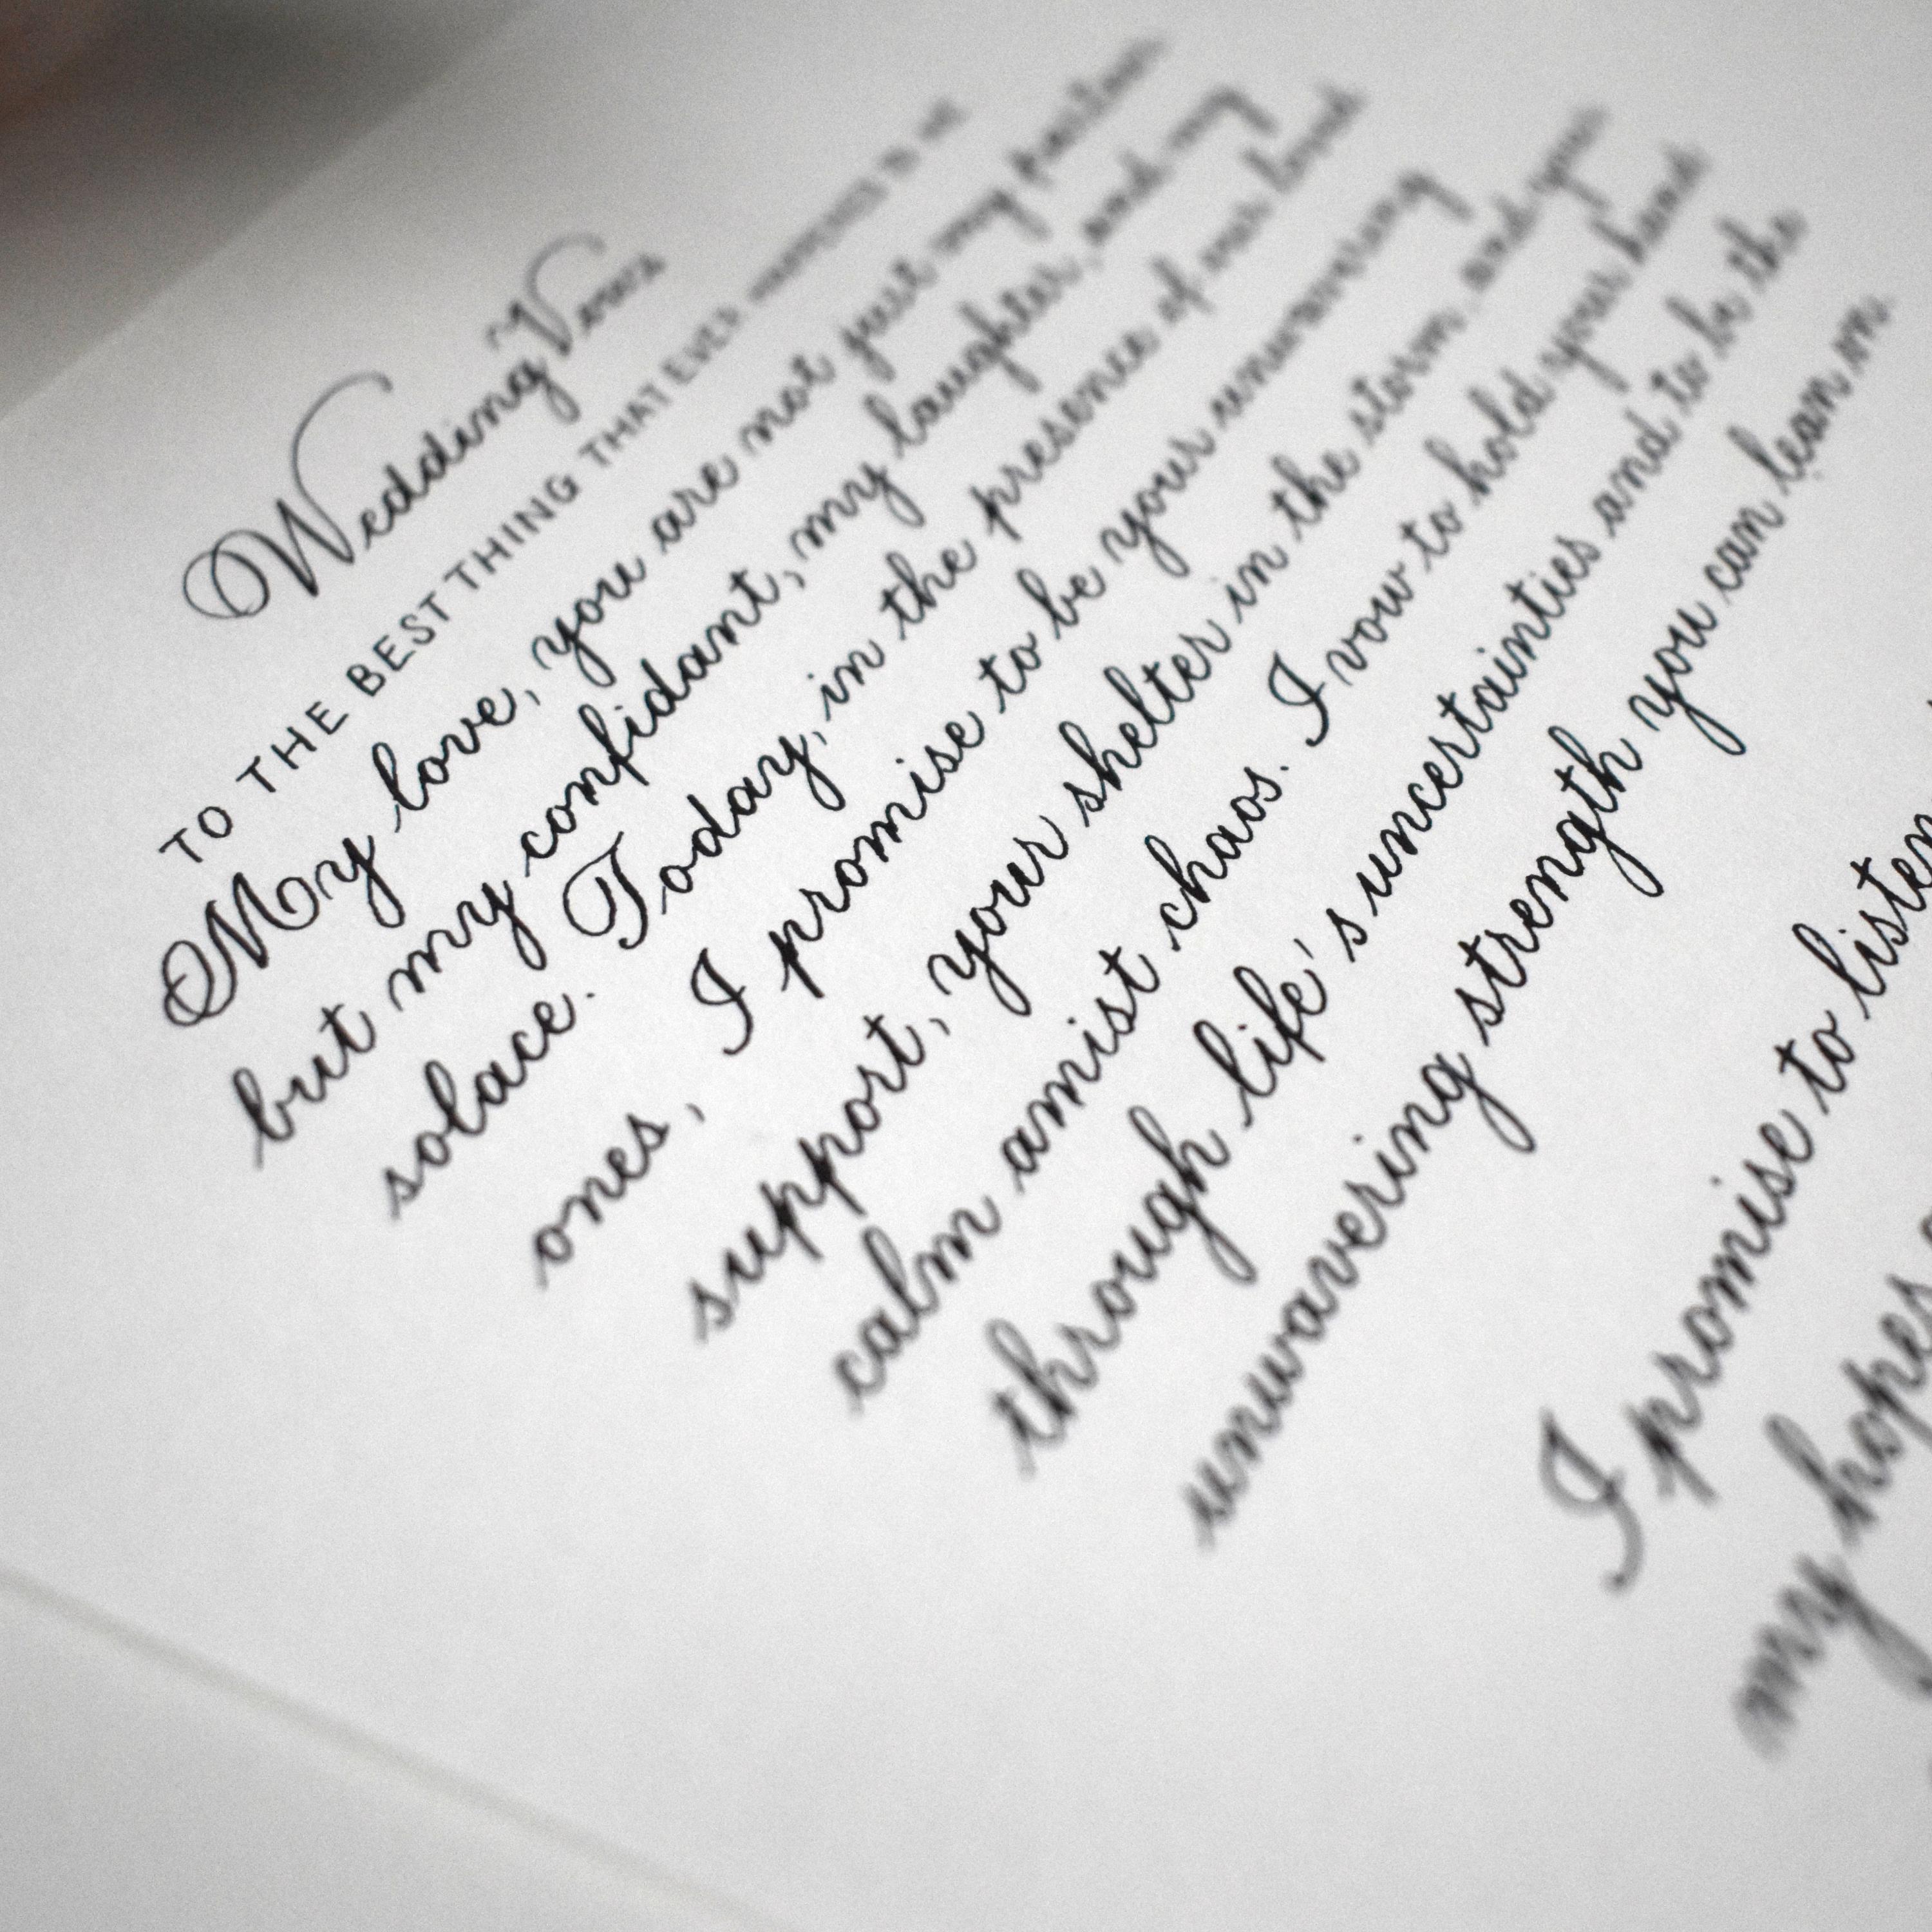 Wedding Vows
TO THE BEST THING THAT EVER HAPPENED TO ME
My love, you are not just my partner
but my confidant, my laughter, and my
solace. Today, in the presence of our loved
ones, I promise to be your unwavering
support, your shelter in the storm, and your
calm amist chaos. I vow to hold your hand
through life's uncertainties and to be the
unwavering strength you can lean on.
I promise to listen
my hopes